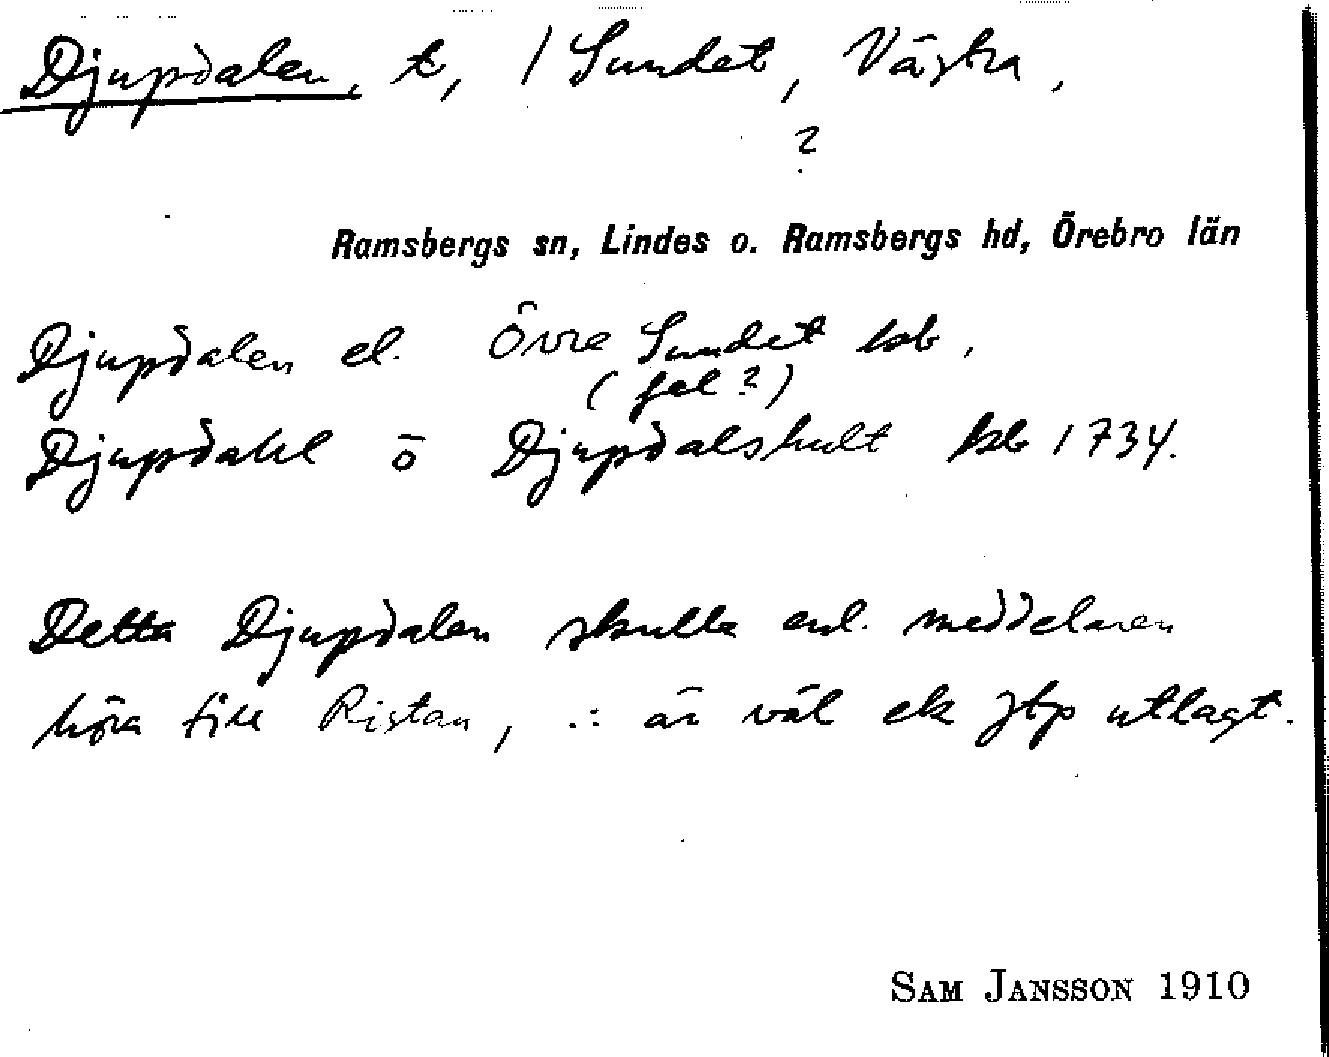 Djupdalen, t, / Sundet, Västra,
?
Ramsbergs sn, Lindes o. Ramsbergs hd, Örebro län
Djupdalen el. Övre Sundet kb,
(fel?)
Djupdahl ö Djupdalshult kb 1734.
Detta Djupdalen skulle enl. meddelaren
höra till Ristan, .: är väl ek jbp utlagt.
SAM JANSSON 1910